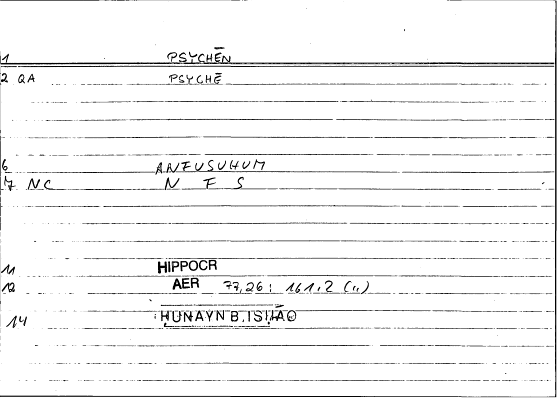 1 PSYCHĒN
2 QA PSYCHĒ
6 ANFUSUHUM
7 NC N F S
11 HIPPOCR
12 AER 77,26: 161,2 (,,)
14 HUNAYN B. ISḤĀQ